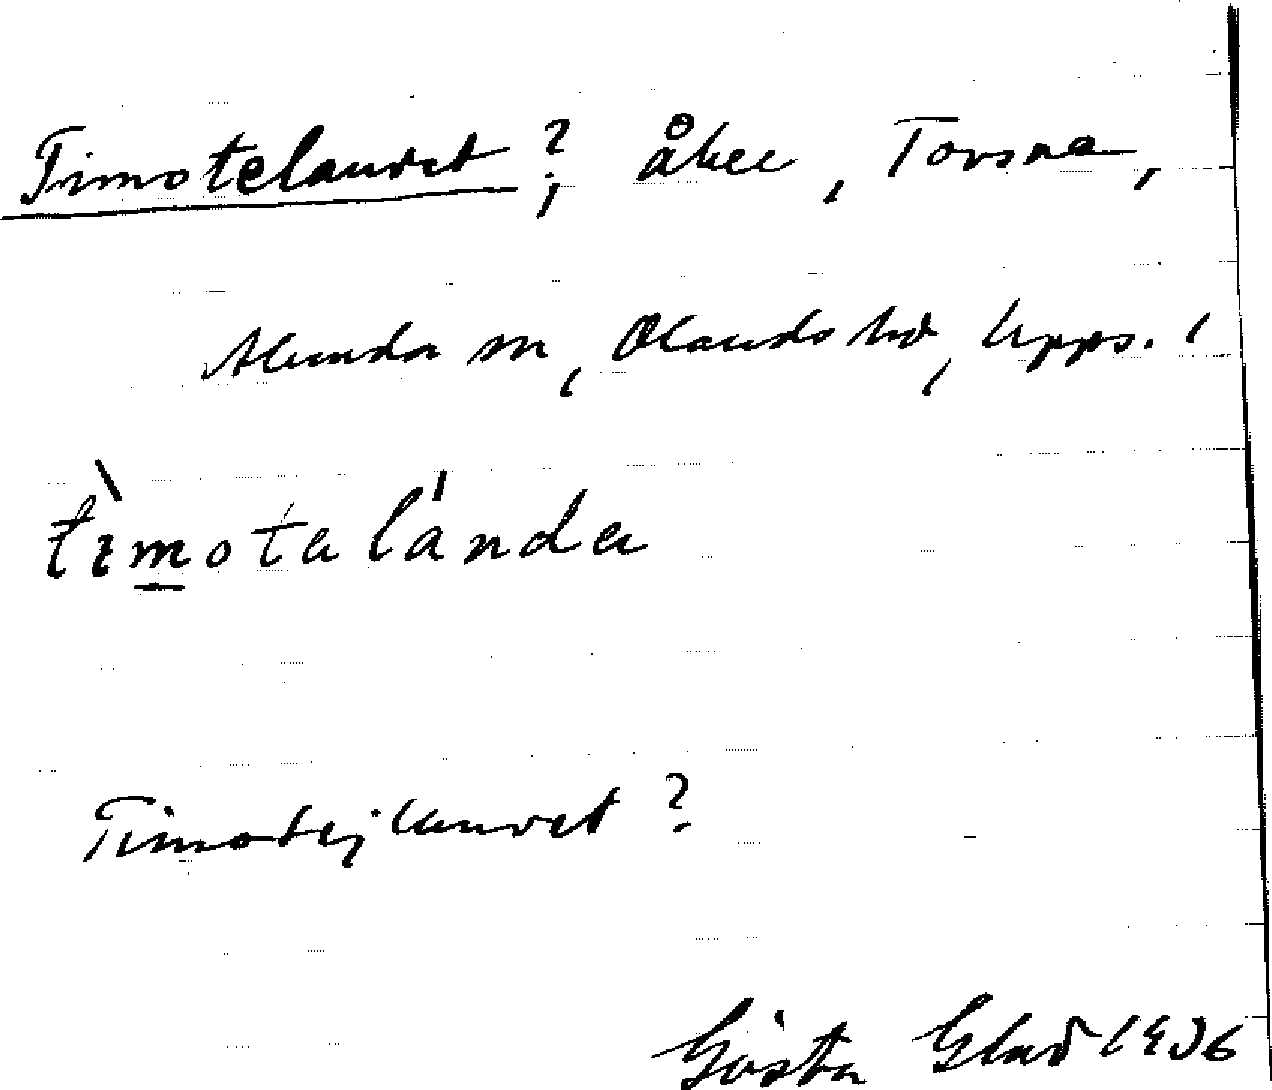 Timotelandet?; åker, Torsne,
Alunda sn, Olands hd, Upps. l
tìmotalánda
Timotejlandet?
Gösta Glad 1936